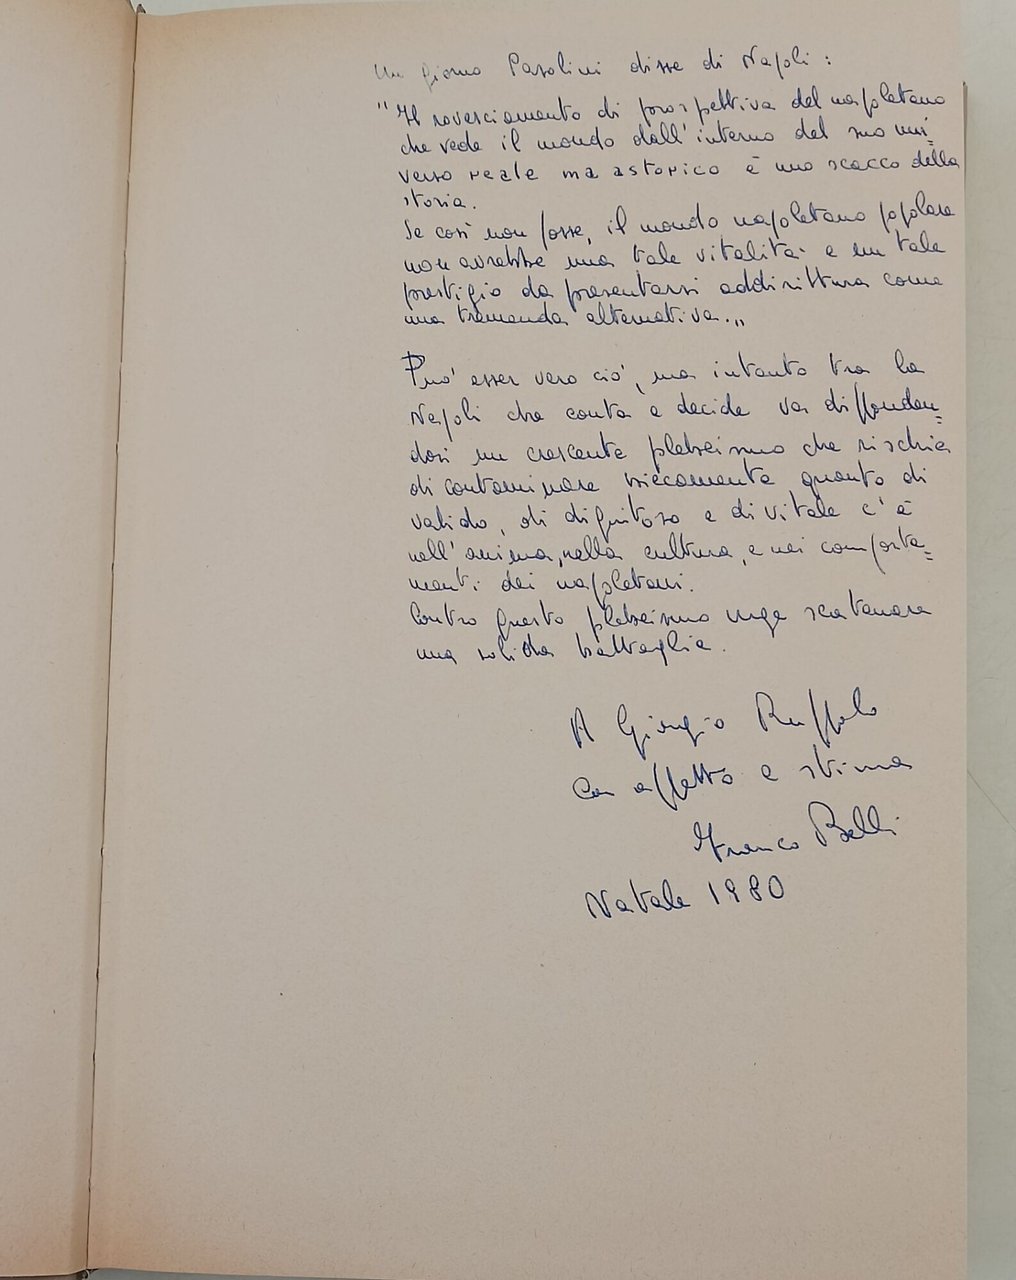 Un giorno Pasolini disse di Napoli:
"Il rovesciamento di prospettiva del napoletano
che vede il mondo dall'interno del suo uni=
verso reale ma astorico è uno scacco della
storia.
Se così non fosse, il mondo napoletano popolare
non avrebbe una tale vitalità e un tale
prestigio da presentarsi addirittura come
una tremenda alternativa.„
Può esser vero ciò, ma intanto tra la
Napoli che conta e decide va diffonden=
dosi un crescente plebeismo che rischia
di contaminare biecamente quanto di
valido, di dignitoso e di vitale c'è
nell'anima, nella cultura, e nei comporta=
menti dei napoletani.
Contro questo plebeismo urge scatenare
una solida battaglia.
A Giorgio Ruffolo
con affetto e stima
Franco Belli
Natale 1980